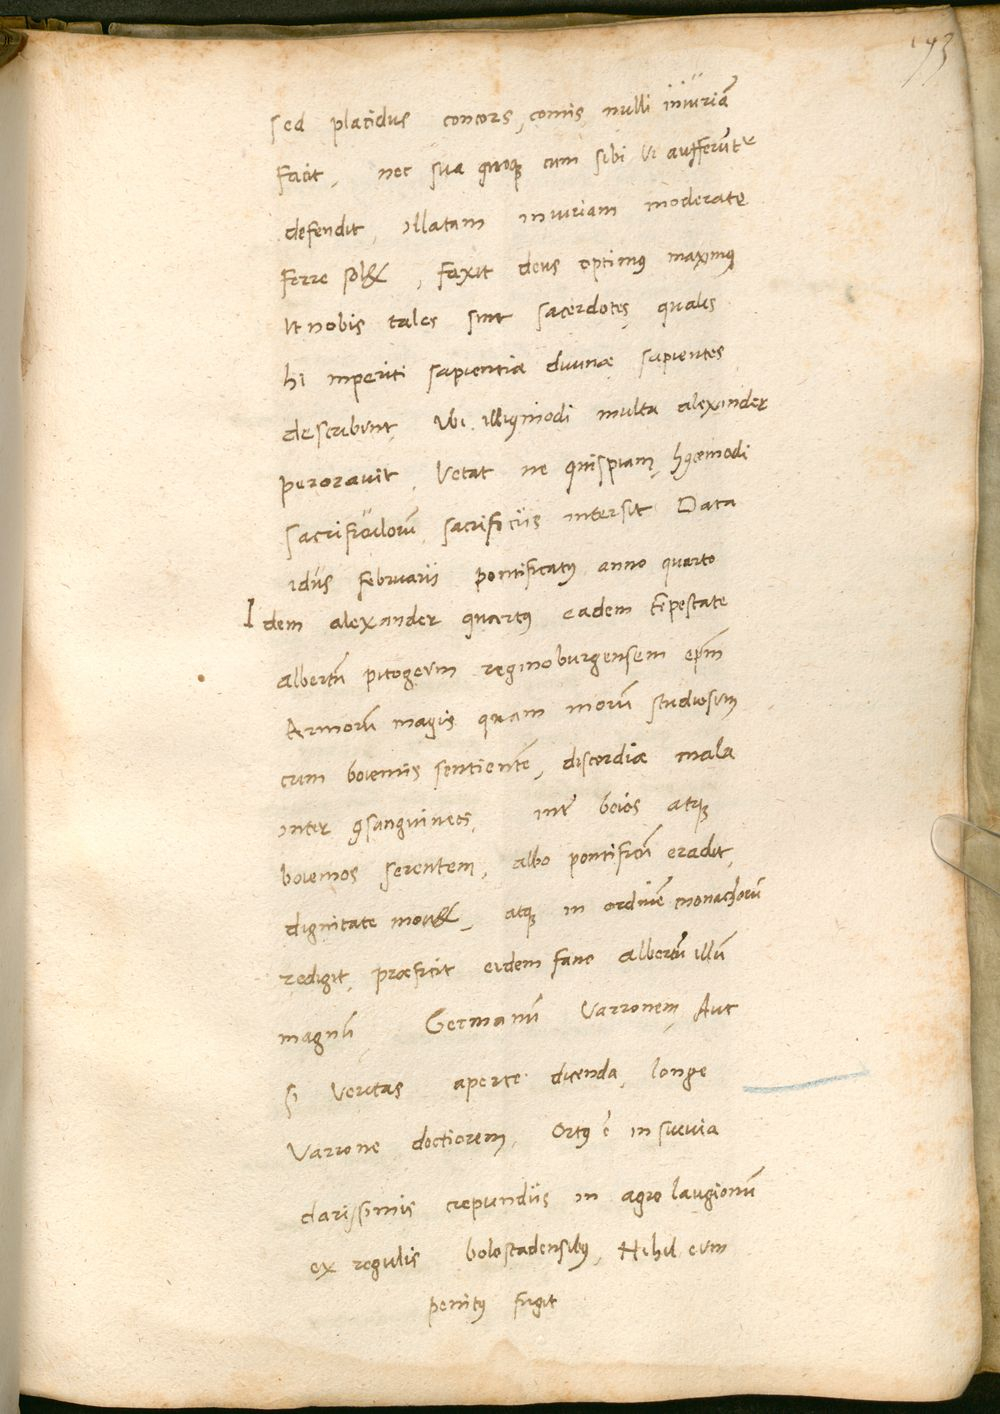 173
sed placidus concors, comis, nulli iniuriã
facit, nec sua quoq; cum sibi vi aufferũtr
defendit, illatam iniuriam moderate
ferre sol&, faxit deus optimus maximus
Vt nobis tales sint sacerdotes, quales
hi imperiti sapientiæ diuinæ sapientes
describunt, Vbi illiusmodi multa alexander
perorauit, Vetat ne quispiam, hᵒcemodi
sacrificulorũ, sacrificiis intersit Data
idus februarii pontificatus anno quarto
Idem alexander quartus eadem tẽpestate
albertũ pitogeum reginoburgensem ep̃m
Armorũ magis quam morũ studiosum
cum boiemis sentientẽ, discordiæ mala
inter 9sanguineos, intr̃ boios atq;
boiemos serentem, albo pontificũ eradit,
dignitate mou&, atq; in ordinẽ monachorũ
redigit, præficit eidem fano albertũ illũ
magnũ, Germanũ Varronem, Aut
si veritas aperte dicenda, longe
Varrone doctiorem, Ortus ẽ in sueuia
clarissimis crepundiis in agro laugionũ
ex regulis bolostadensibus, Nihil eum
penitus fugit